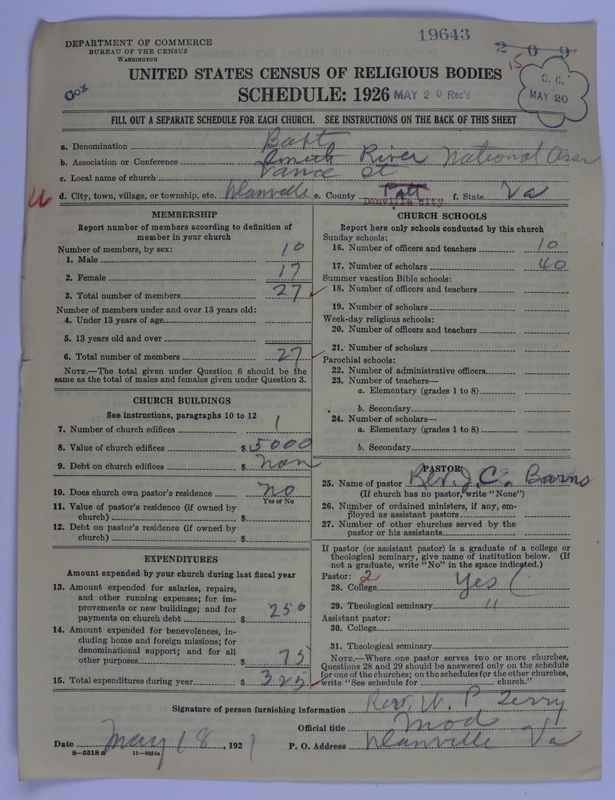 19643
DEPARTMENT OF COMMERCE
BUREAU OF THE CENSUS
WASHINGTON
209
15
C. C.
MAY 20
UNITED STATES CENSUS OF RELIGIOUS BODIES
SCHEDULE: 1926 MAY 20 Rec'd
FILL OUT A SEPARATE SCHEDULE FOR EACH CHURCH. SEE INSTRUCTIONS ON THE BACK OF THIS SHEET
a. Denomination Bapt
b. Association or Conference Smith River National Assn
c. Local name of church Vance St
d. City, town, village, or township, etc. Danville e. County Patt Danville City f. State Va
MEMBERSHIP
Report number of members according to definition of
member in your church
Number of members, by sex:
1. Male 10
2. Female 17
3. Total number of members 27
Number of members under and over 13 years old:
4. Under 13 years of age
5. 13 years old and over
6. Total number of members 27
NOTE.—The total given under Question 6 should be the
same as the total of males and females given under Question 3.
CHURCH BUILDINGS
See instructions, paragraphs 10 to 12
7. Number of church edifices 1
8. Value of church edifices $ 5000
9. Debt on church edifices $ non
10. Does church own pastor's residence no
Yes or No
11. Value of pastor's residence (if owned by
church) $
12. Debt on pastor's residence (if owned by
church) $
EXPENDITURES
Amount expended by your church during last fiscal year
13. Amount expended for salaries, repairs,
and other running expenses; for im-
provements or new buildings; and for
payments on church debt $ 250
14. Amount expended for benevolences, in-
cluding home and foreign missions; for
denominational support; and for all
other purposes $ 75
15. Total expenditures during year $ 325
CHURCH SCHOOLS
Report here only schools conducted by this church
Sunday schools:
16. Number of officers and teachers 10
17. Number of scholars 40
Summer vacation Bible schools:
18. Number of officers and teachers
19. Number of scholars
Week-day religious schools:
20. Number of officers and teachers
21. Number of scholars
Parochial schools:
22. Number of administrative officers
23. Number of teachers—
a. Elementary (grades 1 to 8)
b. Secondary
24. Number of scholars—
a. Elementary (grades 1 to 8)
b. Secondary
PASTOR
25. Name of pastor Rev. J. C. Barns
(If church has no pastor, write "None")
26. Number of ordained ministers, if any, em-
ployed as assistant pastors
27. Number of other churches served by the
pastor or his assistants
If pastor (or assistant pastor) is a graduate of a college or
theological seminary, give name of institution below. (If
not a graduate, write "No" in the space indicated.)
Pastor: 2
28. College Yes (
29. Theological seminary "
Assistant pastor:
30. College
31. Theological seminary
NOTE.—Where one pastor serves two or more churches,
Questions 28 and 29 should be answered only on the schedule
for one of the churches; on the schedules for the other churches,
write "See schedule for church."
Signature of person furnishing information Rev. W. P. Terry
Official title Mod
Date May 18, 1927 P. O. Address Danville Va
8—5518a 11—9054a